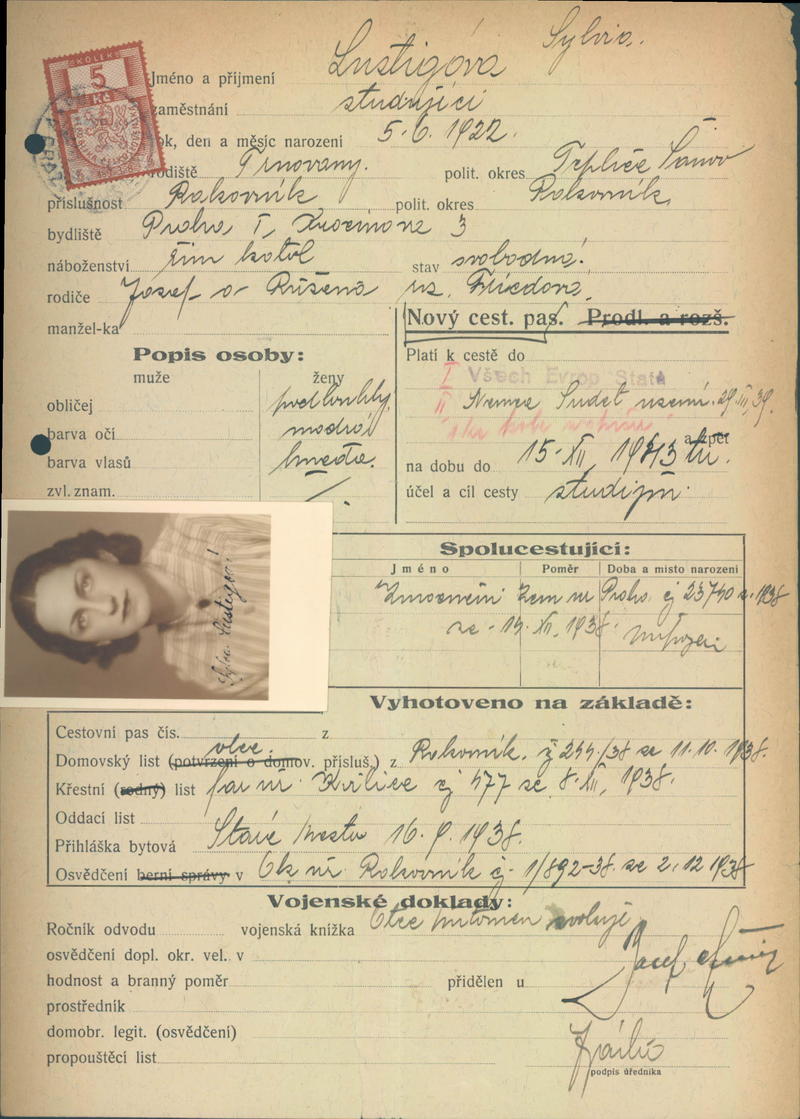 KOLEK
5
Kč
Jméno a příjmení Lustigóva Sylvia.
zaměstnání studující
ok, den a měsíc narození 5. 6. 1922.
rodiště Trnovany. polit. okres Teplice Šanov
příslušnost Rakovník polit. okres Rakovník
bydliště Praha I, 3
náboženství řím katol stav svobodná.
rodiče Josef a Růžena roz. Friedova,
manžel-ka
Nový cest. pas. Prodl. a rozš.
Popis osoby:
muže ženy
Platí k cestě do
I Všech Evrop Států
obličej podlouhlý
II Nemec Sudet území. 29. III. 39.
barva očí modrá
a zpět
barva vlasů hnědá.
na dobu do 15. XII. 1943
zvl. znam. /.
účel a cíl cesty studijní.
Sylva Lustigova!
Spolucestující:
Jméno Poměr Doba a místo narození
Zem úř Praha čj 23740 1938
ze 14. XII. 1938.
Vyhotoveno na základě:
Cestovní pas čís. z
Domovský list (potvrzení o domov. přísluš.) z otce. Rakovník. č 244/38 ze 11. 10. 1938.
Křestní (rodný) list far úř. čj 477 ze 8. XII. 1938.
Oddací list
Přihláška bytová Staré Město 16. 9. 1938.
Osvědčení berní správy v Ok úř Rakovník čj. 1/892-38 ze 2. 12 1938
Vojenské doklady:
Ročník odvodu vojenská knížka Otec svoluje
osvědčení dopl. okr. vel. v Josef
hodnost a branný poměr přidělen u
prostředník
domobr. legit. (osvědčení)
propouštěcí list
podpis úředníka